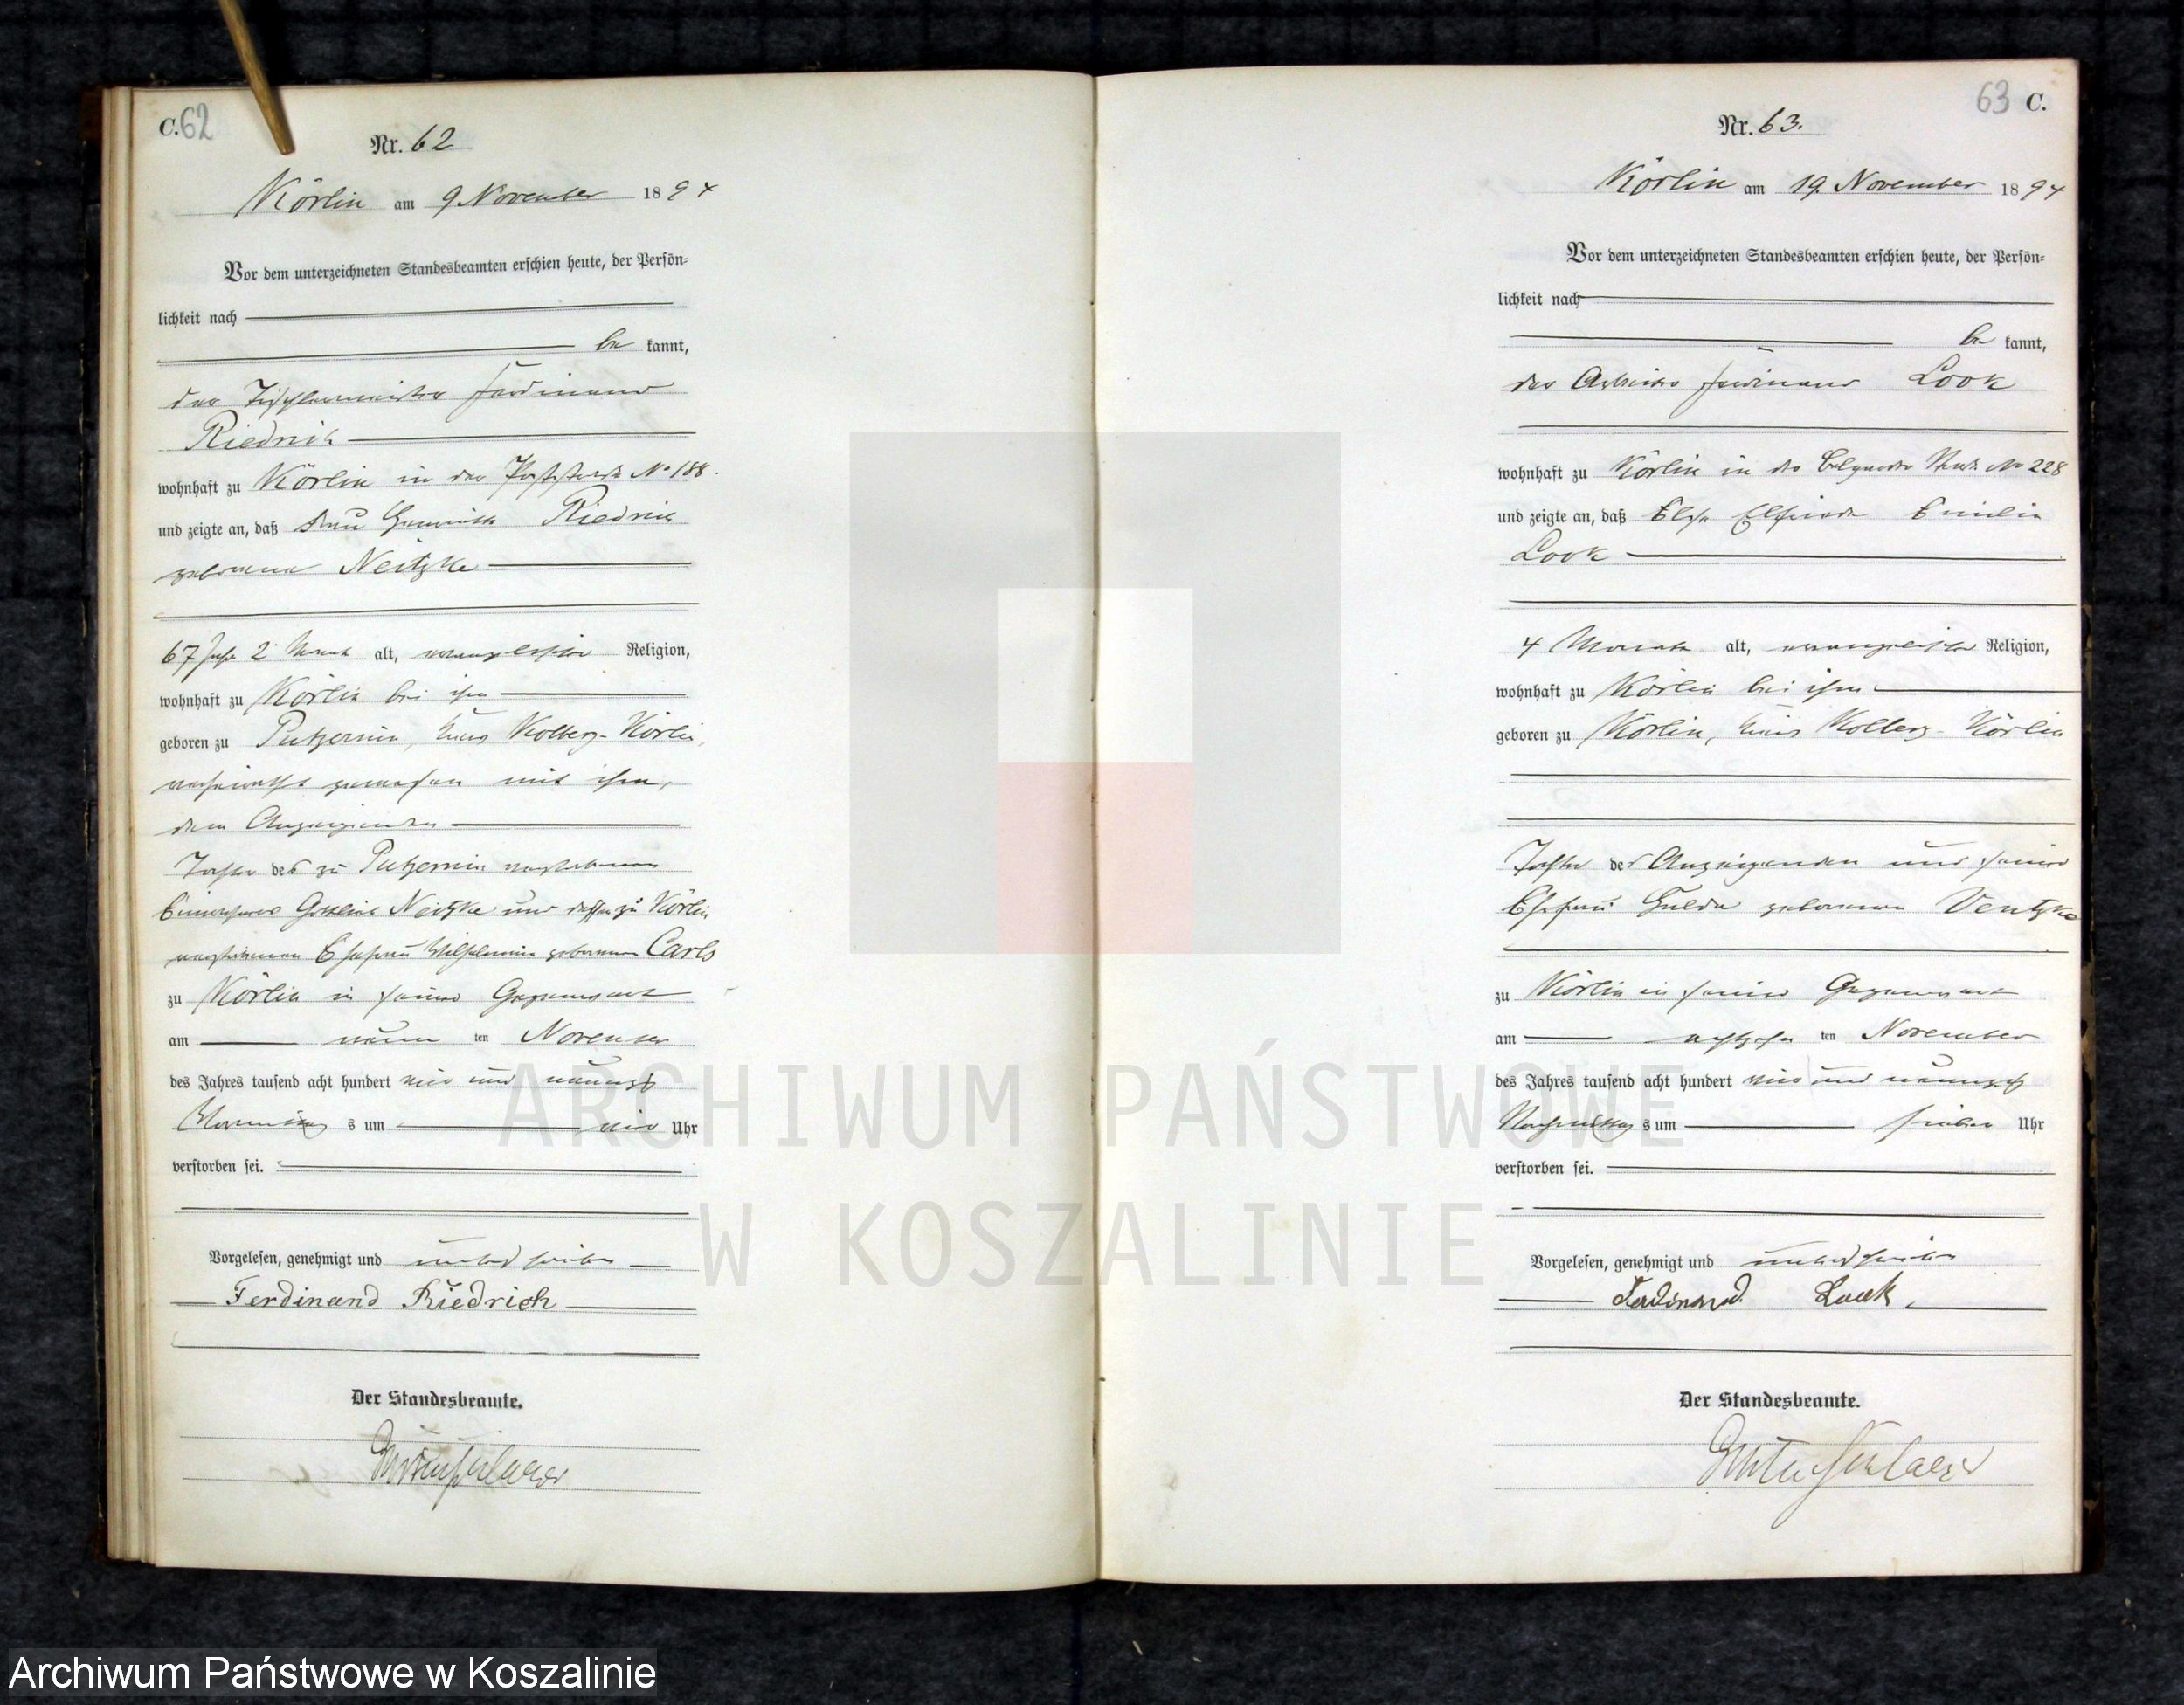 C. 62
Nr. 62
Körlin am 9 November 1894
Vor dem unterzeichneten Standesbeamten erschien heute, der Persön-
lichkeit nach
be kannt,
der Tischlermeister Ferdinand
Riedrich
wohnhaft zu Körlin in der Poststraße No 188.
und zeigte an, daß Frau Riedrich
geborene Neitzke
67 Jahr 2 Monat alt, evangelischer Religion,
wohnhaft zu Körlin bei ihm
geboren zu Putzernin, Kreis Kolberg-Körlin,
verheirathet gewesen mit ihm,
dem Anzeigenden
Tochter des zu Putzernin verstorbenen
Einwohners Gottlieb Neitzke und dessen zu Körlin
verstorbenen Ehefrau Wilhelmine geborenen Carls
zu Körlin in seiner Gegenwart
am neun ten November
des Jahres tausend acht hundert vier und neunzig
Vormittags um vier Uhr
verstorben sei.
Vorgelesen, genehmigt und unterschrieben
Ferdinand Riedrich
Der Standesbeamte.
63 C.
Nr. 63.
Körlin am 19. November 1894
Vor dem unterzeichneten Standesbeamten erschien heute, der Persön-
lichkeit nach
be kannt,
der Arbeiter Ferdinand Look
wohnhaft zu Körlin in der Belgarder Straße No 228
und zeigte an, daß Elfriede Emilie
Look
4 Monate alt, evangelischer Religion,
wohnhaft zu Körlin bei ihm
geboren zu Körlin, Kreis Kolberg-Körlin
Tochter des Anzeigenden und seiner
Ehefrau Hulda geborenen Ventzke
zu Körlin in seiner Gegenwart
am achtzehn ten November
des Jahres tausend acht hundert vier und neunzig
Nachmittags um sieben Uhr
verstorben sei.
Vorgelesen, genehmigt und unterschrieben
Ferdinand Look
Der Standesbeamte.
ARCHIWUM PAŃSTWOWE
W KOSZALINIE
Archiwum Państwowe w Koszalinie